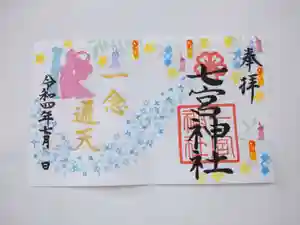 奉拝
七宮神社
一念
通天
令和四年七月 日